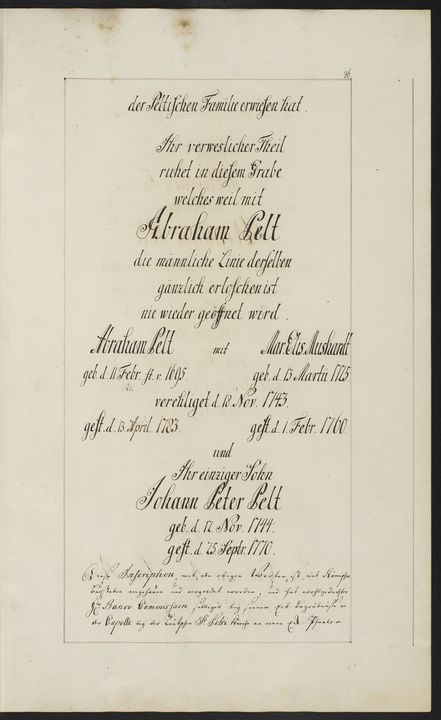 96.
der Peltischen Familie erwiesen hat.
Ihr verweslicher Theil
ruhet in diesem Grabe
welches weil mit
Abraham Pelt
die männliche Linie derselben
gänzlich erloschen ist
nie wieder geöffnet wird.
Abraham Pelt mit Mar. Elis Mushardt
geb. d. 11 Febr. st. v. 1695. geb. d. 13 Martii 1725
verehliget d. 18. Nov. 1743.
gest. d. 13 April. 1783. gest. d. 1. Febr. 1760.
und
Ihr einziger Sohn
Johann Peter Pelt
geb. d. 12. Nov. 1744.
gest. d. 25 Septr. 1770.
Diese Inscription, mit den obigen Worten, ist mit Römischen
Buchstaben eingehauen und vergoldet worden, und hat wohlgedachter
Hr. Banco Commissair, selbige bey seinem Erb Begräbnisse in
der Capelle bey der St. Petri Kirche an einem